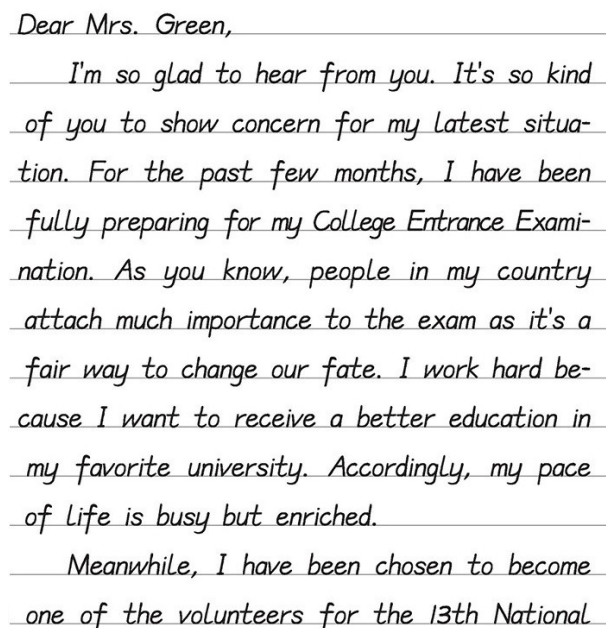 Dear Mrs. Green,
I'm so glad to hear from you. It's so kind
of you to show concern for my latest situa-
tion. For the past few months, I have been
fully preparing for my College Entrance Exami-
nation. As you know, people in my country
attach much importance to the exam as it's a
fair way to change our fate. I work hard be-
cause I want to receive a better education in
my favorite university. Accordingly, my pace
of life is busy but enriched.
Meanwhile, I have been chosen to become
one of the volunteers for the 13th National